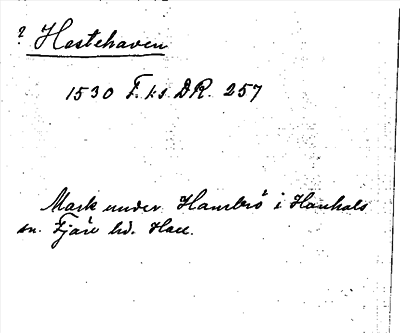 ? Hestehaven
1530 F. 1.s. DR. 257
Mark under Hambrö i Hanhals
sn. Fjäre hd. Hall.